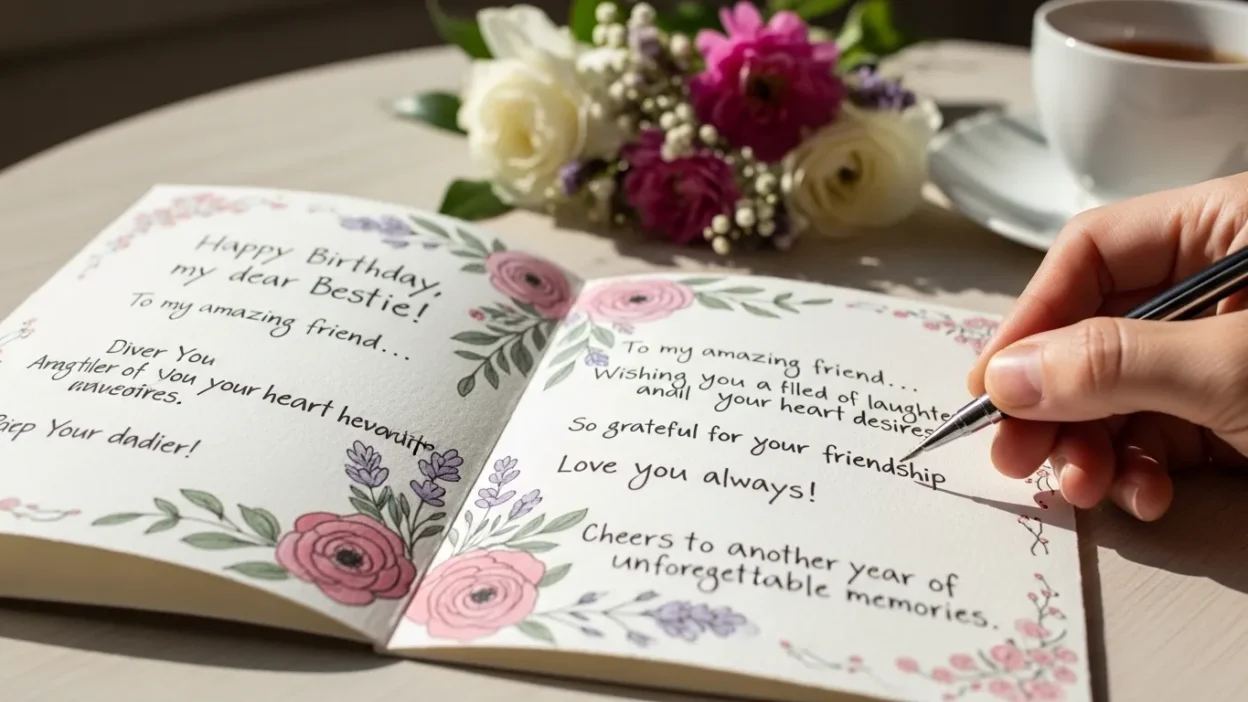 Happy Birthday,
my dear Bestie!
To my amazing friend...
Diver You
of You your heart
Your dadier!
To my amazing friend...
Wishing you a flled of laughte
anall your heart desires
So grateful for your friendship
Love you always!
Cheers to another year of
unforegettable memories.